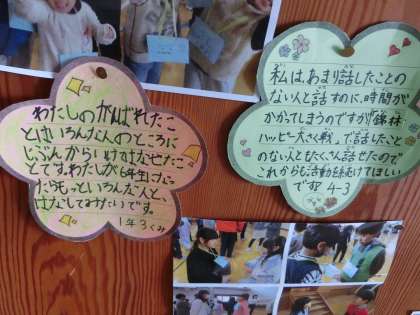 わたしのがんばれたこ
とはいろんな人のところに
じぶんからいけはなせたこ
とです。わたしが6年生になっ
たらもっといろんな人と、
はなしてみたいです。
1年3くみ
私は、あまり話したことの
ない人と話すのに、時間が
かかってしまうのですが「錦林
ハッピー大さく戦」で話したこと
のない人ともたくさん話せたので
これからも活動を続けてほしい
です。 4-3